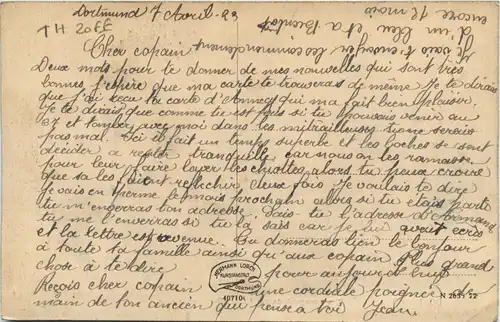 Dortmund 7 Avril - 23
TH 20EE
encore 12 mois
d'un bleu et a Bientot
Je vais t'envoyer
Cher copain
Deux mots pour te donner de mes nouvelles qui sont très
bonnes j'espère que ma carte te trouveras de même Je te dirais
que j'ai reçu ta carte d'Annecy qui ma fait bien plaisir.
Je te dirais que comme tu est pris si tu pouvais venir au
67 et tomber avec moi dans les mitrailleuses tu ne serais
pas mal. Ici il fait un temps superbe et les boches se sont
décider a rester tranquille car nous on les ramasse
pour leur faire les alors tu peux croire
que sa les fait refléchir deux fois Je voulais te dire
Je vais en perme le mois prochain alors si tu étais parti
tu m'envoyras ton adresse. Sais tu l'adresse d'Armand
tu me l'enverrais si tu la sais car je lui avait ecris
et la lettre est revenue. Tu donneras bien le bonjour
à toute ta famille ainsi qu'aux copain. Plus grand
chose à te dire pour aujourd'hui
Reçois cher copain une cordiale poignée de
main de ton ancien qui pense a toi Jean
HERMANN LORCH
KUNSTANSTALT
DORTMUND
40710
N 2653 22